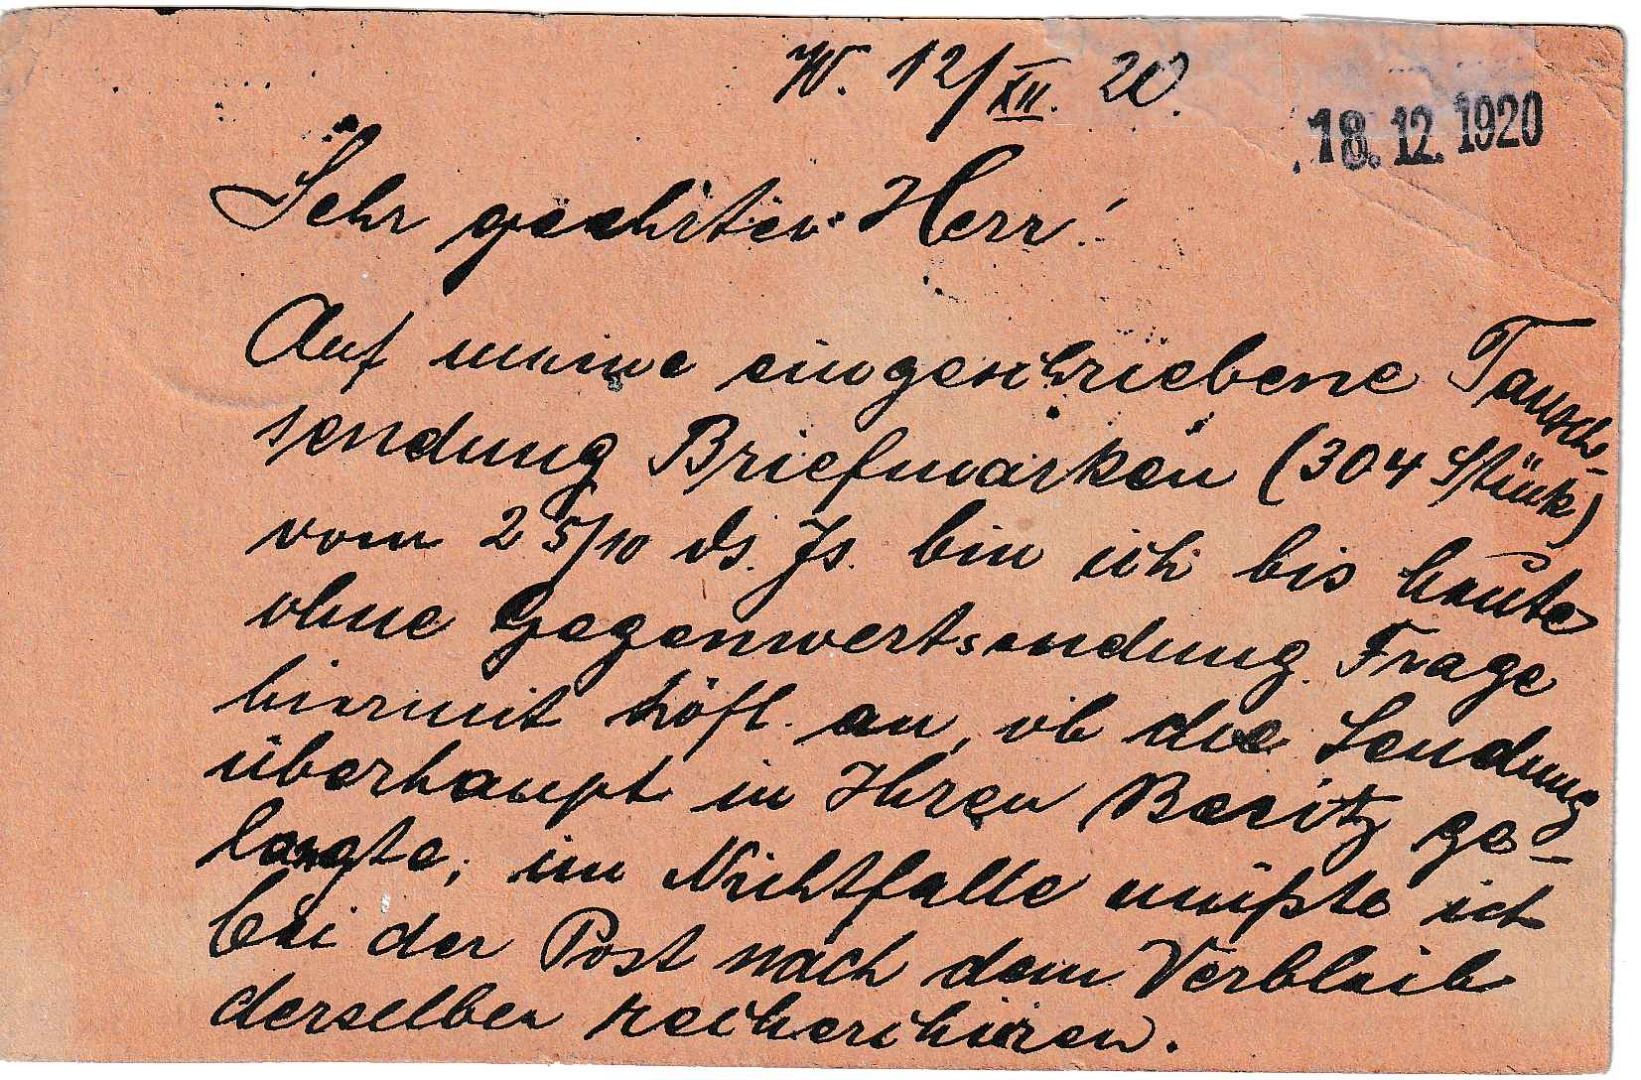 W. 12/XII. 20.
18. 12. 1920
Sehr geehrter Herr!
Auf meine eingeschriebene Tausch-
sendung Briefmarken (304 Stück)
vom 25/10 ds. Js. bin ich bis heute
ohne Gegenwertsendung. Frage
hiermit höfl. an, ob die Sendung
überhaupt in Ihren Besitz ge-
langte; im Nichtfalle müßte ich
bei der Post nach dem Verbleib
derselben recherchieren.